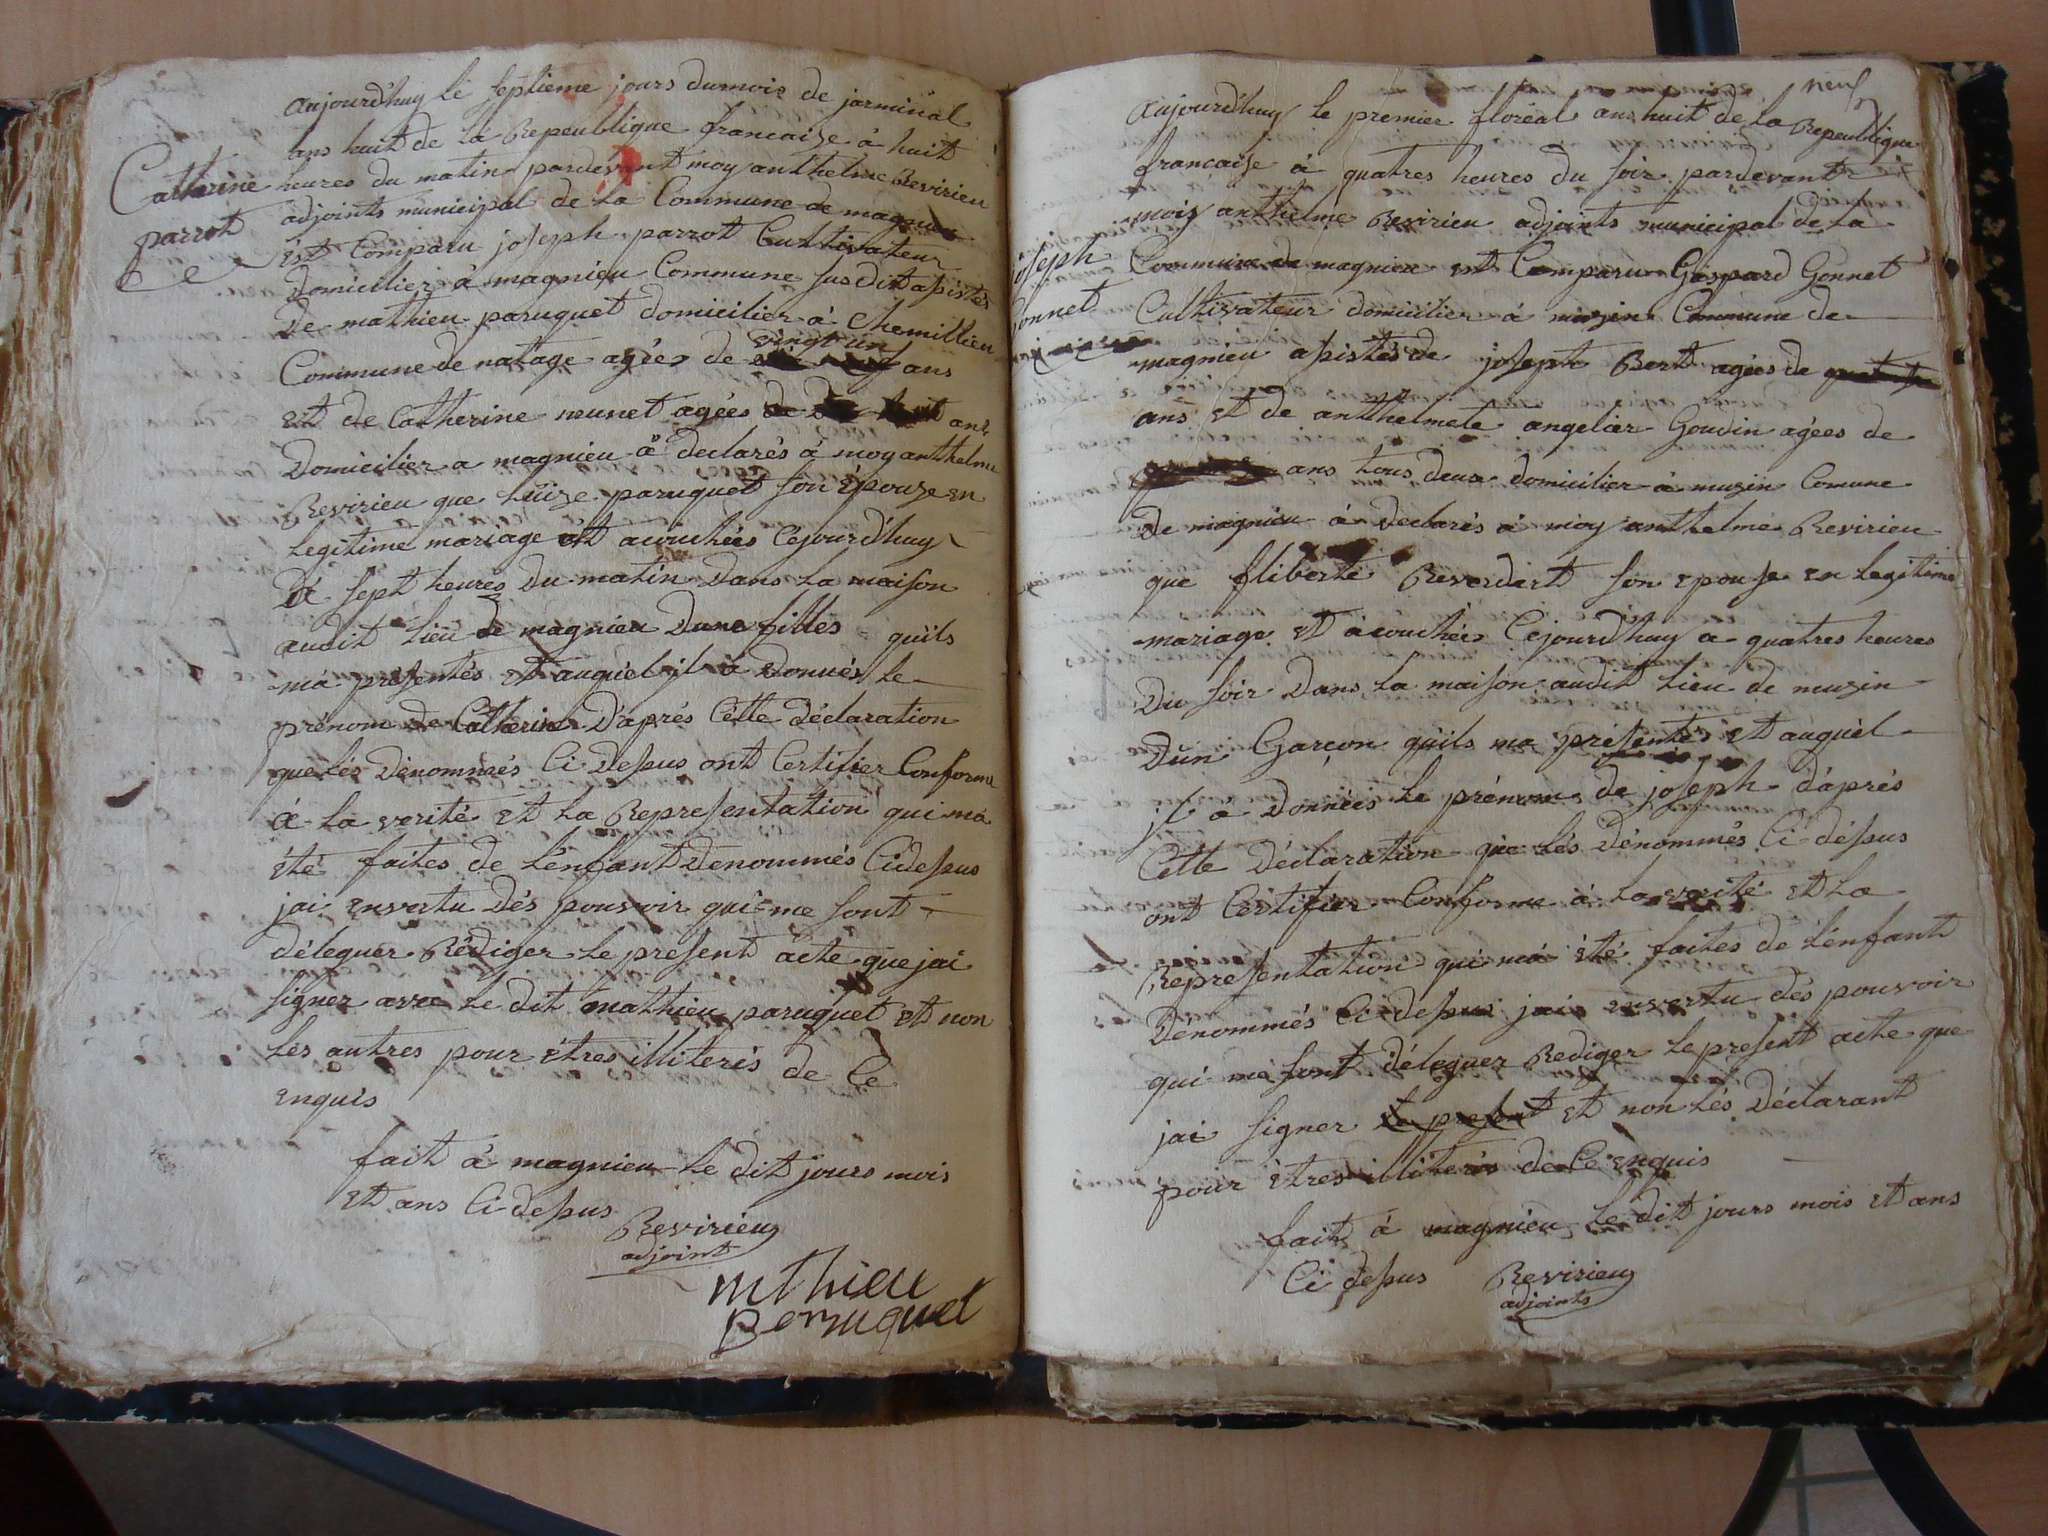 aujourd'huy le septieme jours dumois de jarminal
ans huit de la Repeublique francaise à huit
Catherine
parrot
heures du matin pardevant moy anthelme Revirieu
adjoints municipal de la Commune de magnieu
est Comparu joseph parrot Cultivateur
Domicilier à magnieu Commune susdit asistés
De mathieu paruquet domicilier à Chemillieu
Commune de natage agées de vingt un ans
et de Catherine neunet agées ans
Domicilier a magnieu à declarés à moy anthelme
Revirieu que Luize paruquet son épouze en
Legitime mariage est acouchées Cejourd'huy
à sept heures du matin dans la maison
audit lieu de magnieu Dune filles quils
ma présentés et auquel il à donnés le
prénom de Catherine D'aprés Cette déclaration
que lés Dénommés Ci Desus ont Certifier Conforme
à la verité et la Representation qui ma
été faites de Lenfant Denommés Cidesus
jai envertu Dés pouvoir qui me sont
déleguer Rédiger le présent acte que jai
signer avec le dit mathieu paruquet et non
les autres pour étres illiterés de Ce
enquis
fait à magnieu le dit jours mois
et ans Ci desus
Revirieu
adjoint
mthieu
Peruquet
neuf
aujourd'huy le premier floréal ans huit de la Repeublique
francaize à quatres heures du soir pardevant
moiy anthelme Revirieu adjoints municipal de la
joseph
Gonnet
Commune de magnieu est Comparu Gaspard Gonnet
Cultivateur domicilier à muzin Commune de
magnieu asistés de joseph Bert agées de
ans et de antthelmete angelier Goudin agées de
ans tous deux domicilier à muzin Comune
De magnieu à Declarés à moy anthelme Revirieu
que fliberte Reverdert son epouse en legitime
mariage et àcouchées Cejourd'huy a quatres heures
Du soir Dans la maison audit lieu de muzin
Dun Garçon quils ma présentés et auquel
il à données le prénom de joseph d'aprés
Cette Déclaration que lés Dénommés Ci désus
ont Certifier Conforme à la verité et la
Representation qui ma été faites de Lenfant
Dénommés Ci desus jai envertu dés pouvoir
qui me sont déleguer Rediger le présent acte que
jai signer le présent et non lés Déclarant
pour étres illiterés de Ce enquis
fait à magnieu le dit jours mois et ans
Ci desus
Revirieu
adjoints